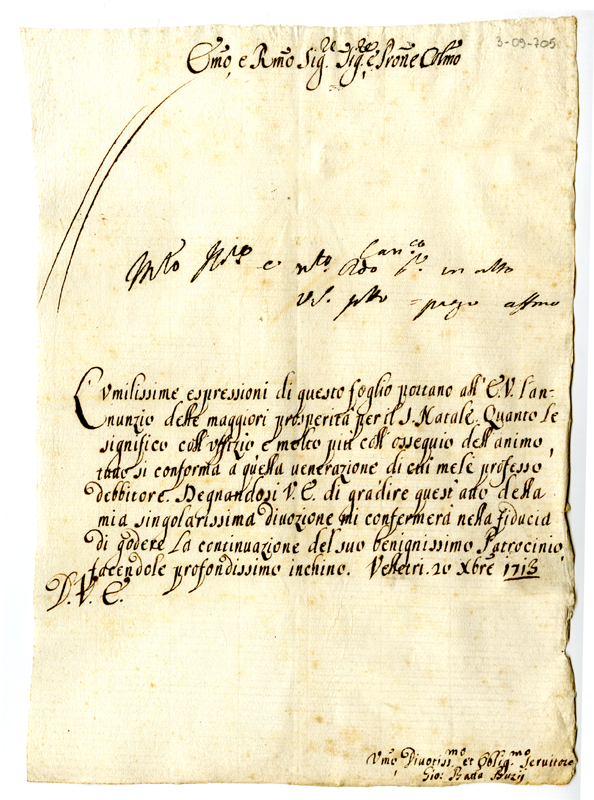 3-09-705
Emo, e Rmo Sig.re Sig.re e Prone Colmo
in alto
Lumilissime espressioni di questo foglio portano all' E.V. l'an-
nunzio delle maggiori prosperità per il S. Natale. Quanto le
significo coll' uffizio e molto più coll' ossequio dell' animo,
tutto si conforma a quella venerazione di cui mele professo
debbitore. Degnandosi V. E. di gradire quest' atto della
mia singolarissima divozione mi confermerà nella fiducia
di godere la continuazione del suo benignissimo Patrocinio,
facendole profondissimo inchino. Velletri. 20 Xbre 1713
D. V. E.
Vmo, Divotiss.mo et Oblig.mo Servitore
Gio: Batta Buzij